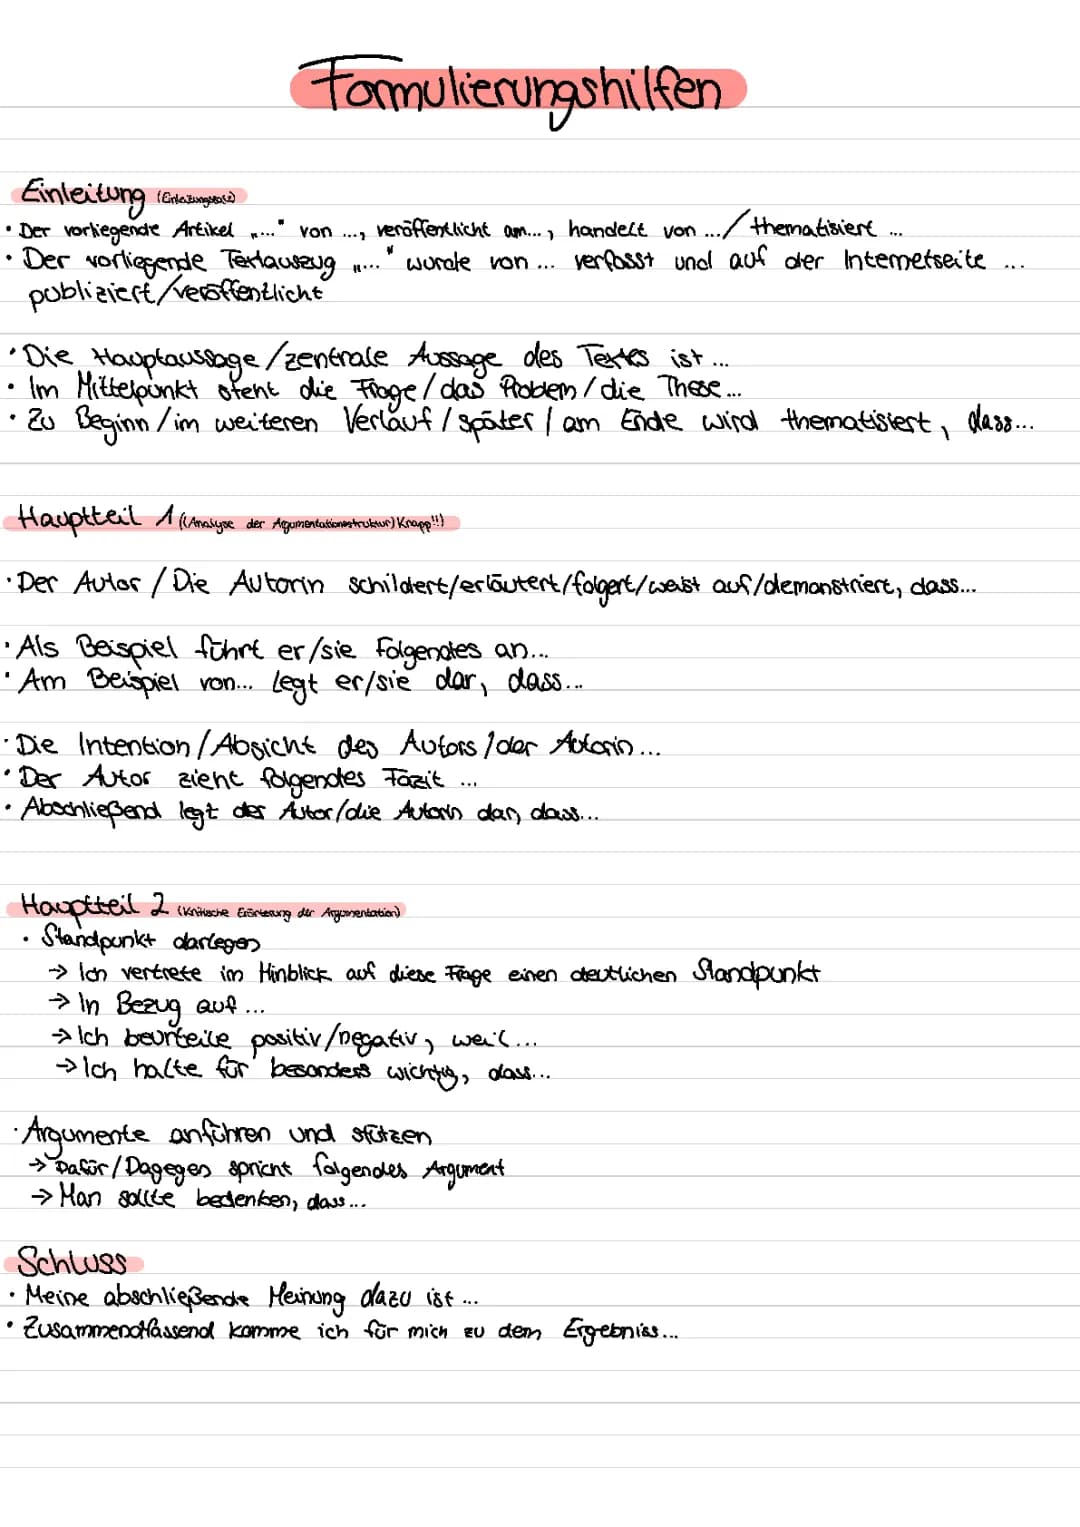 Formulierungshilfen
Einleitung (Einleitungssatz)
• Der vorliegende Artikel „..." von ..., veröffentlicht am..., handelt von .../ thematisiert ...
• Der vorliegende Textauszug „..." wurde von ... verfasst und auf der Internetseite ...
publiziert/veröffentlicht
• Die Hauptaussage/zentrale Aussage des Textes ist ...
• Im Mittelpunkt steht die Frage/das Problem/die These...
• Zu Beginn/im weiteren Verlauf/später/am Ende wird thematisiert, dass...
Hauptteil 1 ((Analyse der Argumentationsstruktur) Knapp!!)
• Der Autor/Die Autorin schildert/erläutert/folgert/weist auf/demonstriert, dass...
• Als Beispiel führt er/sie Folgendes an...
• Am Beispiel von... legt er/sie dar, dass...
• Die Intention/Absicht des Autors/der Autorin...
• Der Autor zieht folgendes Fazit ...
• Abschließend legt der Autor/die Autorin dar, dass...
Hauptteil 2 (Kritische Erörterung der Argumentation)
• Standpunkt darlegen
→ Ich vertrete im Hinblick auf diese Frage einen deutlichen Standpunkt
→ In Bezug auf ...
→ Ich beurteile positiv/negativ, weil...
→ Ich halte für besonders wichtig, dass...
• Argumente anführen und stützen
→ Dafür/Dagegen spricht folgendes Argument
→ Man sollte bedenken, dass...
Schluss
• Meine abschließende Meinung dazu ist ...
• Zusammendfassend komme ich für mich zu dem Ergebniss...